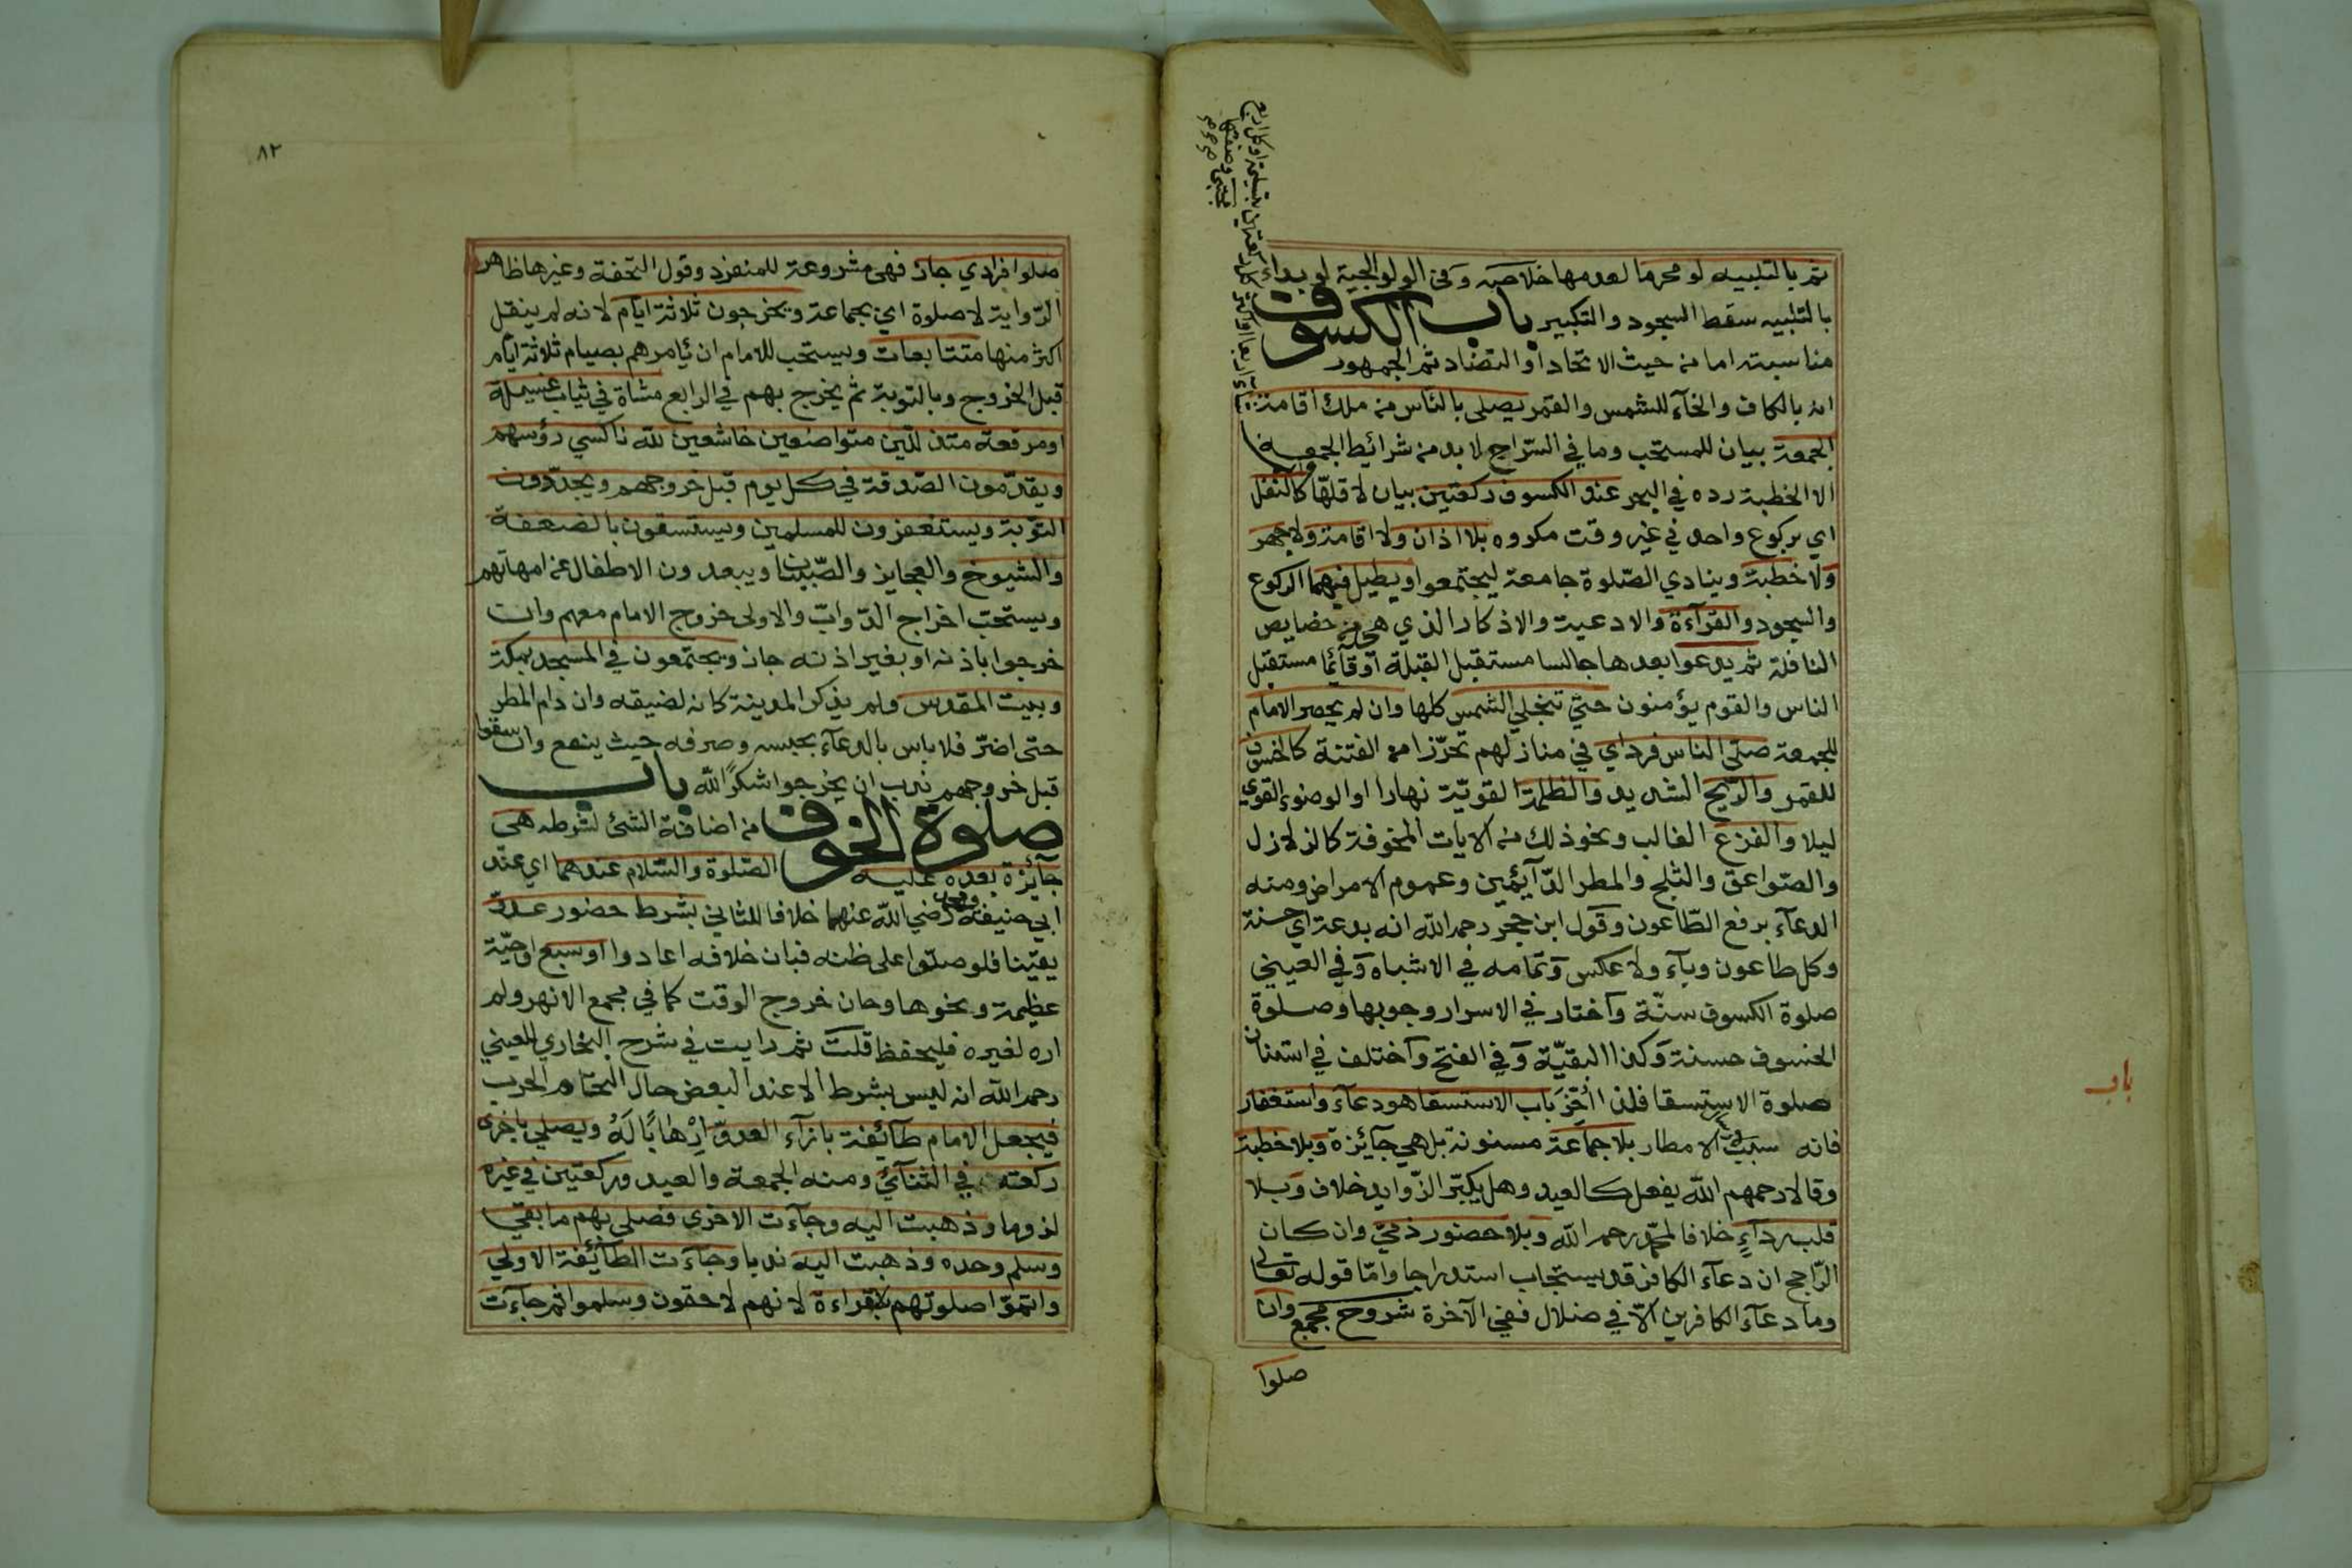 ثم بالتلبيه لو محرما لعدمها خلاصه وفى الولوالجية لو بداء
بالتلبيه سقط السجود والتكبير باب الكسوف
مناسبته اما من حيث الاتحاد او التضاد ثم الجمهور
انه بالكاف والخآء للشمس والقمر يصلى بالناس من ملك اقامة
الجمعة بيان للمستحب وما في السّراج لا بد من شرائط الجمعة
الا الخطبة رده في البحر عند الكسوف ركعتين بيان لاقلّها كالنفل
اي بركوع واحد في غير وقت مكروه بلا اذان ولا اقامة ولا جهر
ولا خطبة وينادي الصّلوة جامعة ليجتمعوا ويطيل فيهما الركوع
والسجود والقرآءة والادعية والاذكار الذي هو من خصايص
النافلة ثم يدعوا بعدها جالسا مستقبل القبلة او قآئما مستقبل
الناس والقوم يؤمنون حتي تنجلي الشمس كلها وان لم يحضر الامام
للجمعة صلّى الناس فرداي في منازلهم تحرّزا من الفتنة كالخسوف
للقمر والرّيح الشديد والظلمة القويّة نهارا او الوضوء القوي
ليلا والفزع الغالب ونحو ذلك من الايات المخوفة كالزلازل
والصّواعق والثلج والمطر الدّآيئمين وعموم الامراض ومنه
الدعآء برفع الطّاعون وقول ابن حجر رحمه الله انه بدعة اي حسنة
وكل طاعون وبآء ولا عكس وتمامه في الاشباه وفي العيني
صلوة الكسوف سنّة وآختار في الاسرار وجوبها وصلوة
الخسوف حسنة وكذا البقيّة وفي الفتح وآختلف في استنان
صلوة الاستسقا فلذا اخّر باب الاستسقا هو دعآء واستغفار
فانه سبب لا الامطار بلا جماعة مسنونة بل هي جآئزة وبلا خطبة
وقالا رحمهم الله يفعل كالعيد وهل يكبّر الزّوايد خلاف وبلا
قلب ردآءٍ خلافا لمحمّد رحمه الله وبلا حضور ذمّي وان كان
الرّاجح ان دعآء الكافر قد يستجاب استدراجا وامّا قوله تعالى
وما دعآء الكافرين الّا في ضلال ففي الآخرة شروح مجمع وان
صلوا
باب
٨٢
صلوا فرادي جاز فهى مشروعة للمنفرد وقول التحفة وغيرها ظاهر
الرّواية لا صلوة اي بجماعة ويخرجون ثلاثة ايّام لانه لم ينقل
اكثر منها متتابعات ويستحب للامام ان يأمرهم بصيام ثلاثة ايّام
قبل الخروج وبالتوبة ثم يخرج بهم في الرابع مشاة في ثياب غسيلة
او مرقعة متذللين متواضعين خاشعين للّه ناكسي رؤسهم
ويقدّمون الصّدقة في كل يوم قبل خروجهم ويجدّدون
التوّبة ويستغفرون للمسلمين ويستسقون بالضعفة
والشيوخ والعجايز والصّبيان ويبعدون الاطفال عن امهاتهم
ويستحبّ اخراج الدّوابّ والاولى خروج الامام معهم وان
خرجوا باذنه او بغير اذنه جاز ويجتمعون في المسجد بمكة
وبيت المقدس ولم يذكر المدينة كانه لضيقه وان دام المطر
حتى اضرّ فلا باس بالدعآء بحبسه وصرفه حيث ينفع وان سقوا
قبل خروجهم ندب ان يخرجوا شكرًا للّه باب
صلوة الخوف من اضافة الشئ لشرطه هي
جآئزة بعده عليه الصّلوة والسّلام عندهما اي عند
ابي حنيفة ومحمد رضي اللّه عنهما خلافا للثاني بشرط حضور عدوّ
يقيّنا فلو صلّوا على ظنه فبان خلافه اعادوا او سبع او حيّة
عظيمة ونحوها وحان خروج الوقت كما في مجمع الانهر ولم
اره لغيره فليحفظ قلت ثم رايت في شرح البخاري للعيني
رحمه اللّه انه ليس بشرط الا عند البعض حال التحام الحرب
فيجعل الامام طآئفة بازآء العدوّ اِرْهابًا لَهُ ويصلي باخرى
ركعته في الثنآئي ومنه الجمعة والعيد وركعتين في غيره
لزوما وذهبت اليه وجآءت الاخري فصلى بهم ما بقي
وسلم وحده وذهبت اليه ندبا وجآءت الطآئفة الاولي
واتمّوا صلوتهم بلا قراءة لانهم لاحقون وسلموا ثم جآءت